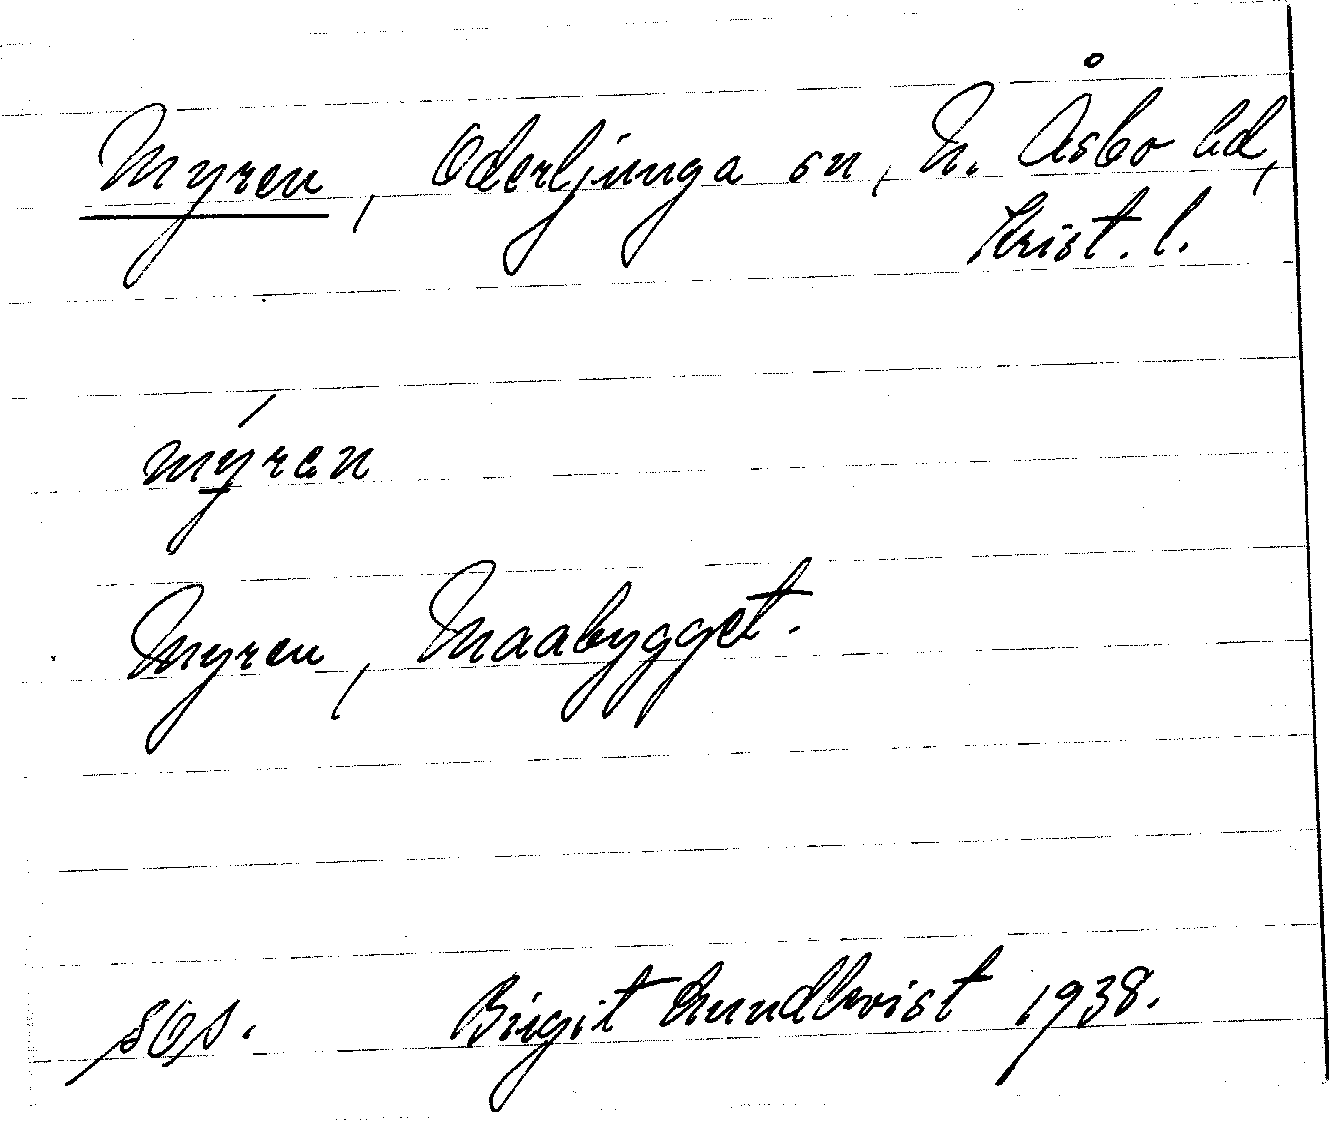 Myren, Oderljunga sn, N. Åsbo hd,
Krist. l.
mýrɛn
Myren, Maabygget.
Birgit Lundkvist 1938.